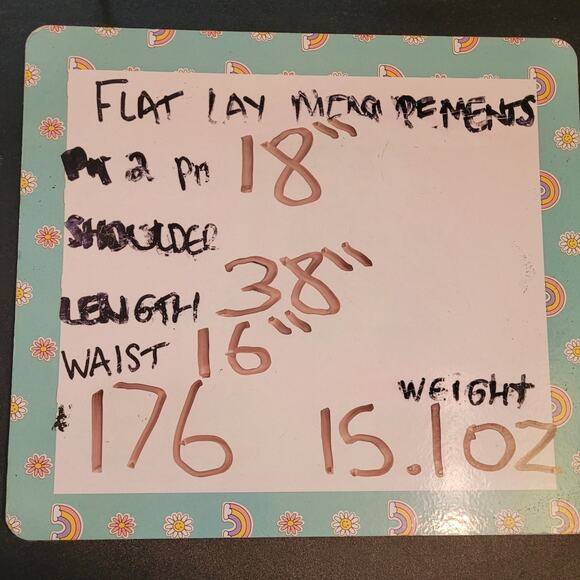 FLAT LAY MEASUREMENTS
Pit 2 Pit 18"
SHOULDER
LENGTH 38"
WAIST 16"
WEIGHT
176 15.1 oz